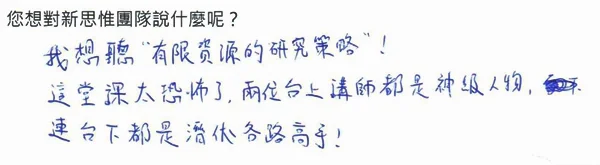 您想對新思惟團隊說什麼呢？
我想聽“有限资源的研究策略”！
這堂課太恐怖了，兩位台上講師都是神级人物，
連台下都是潛伏各路高手！